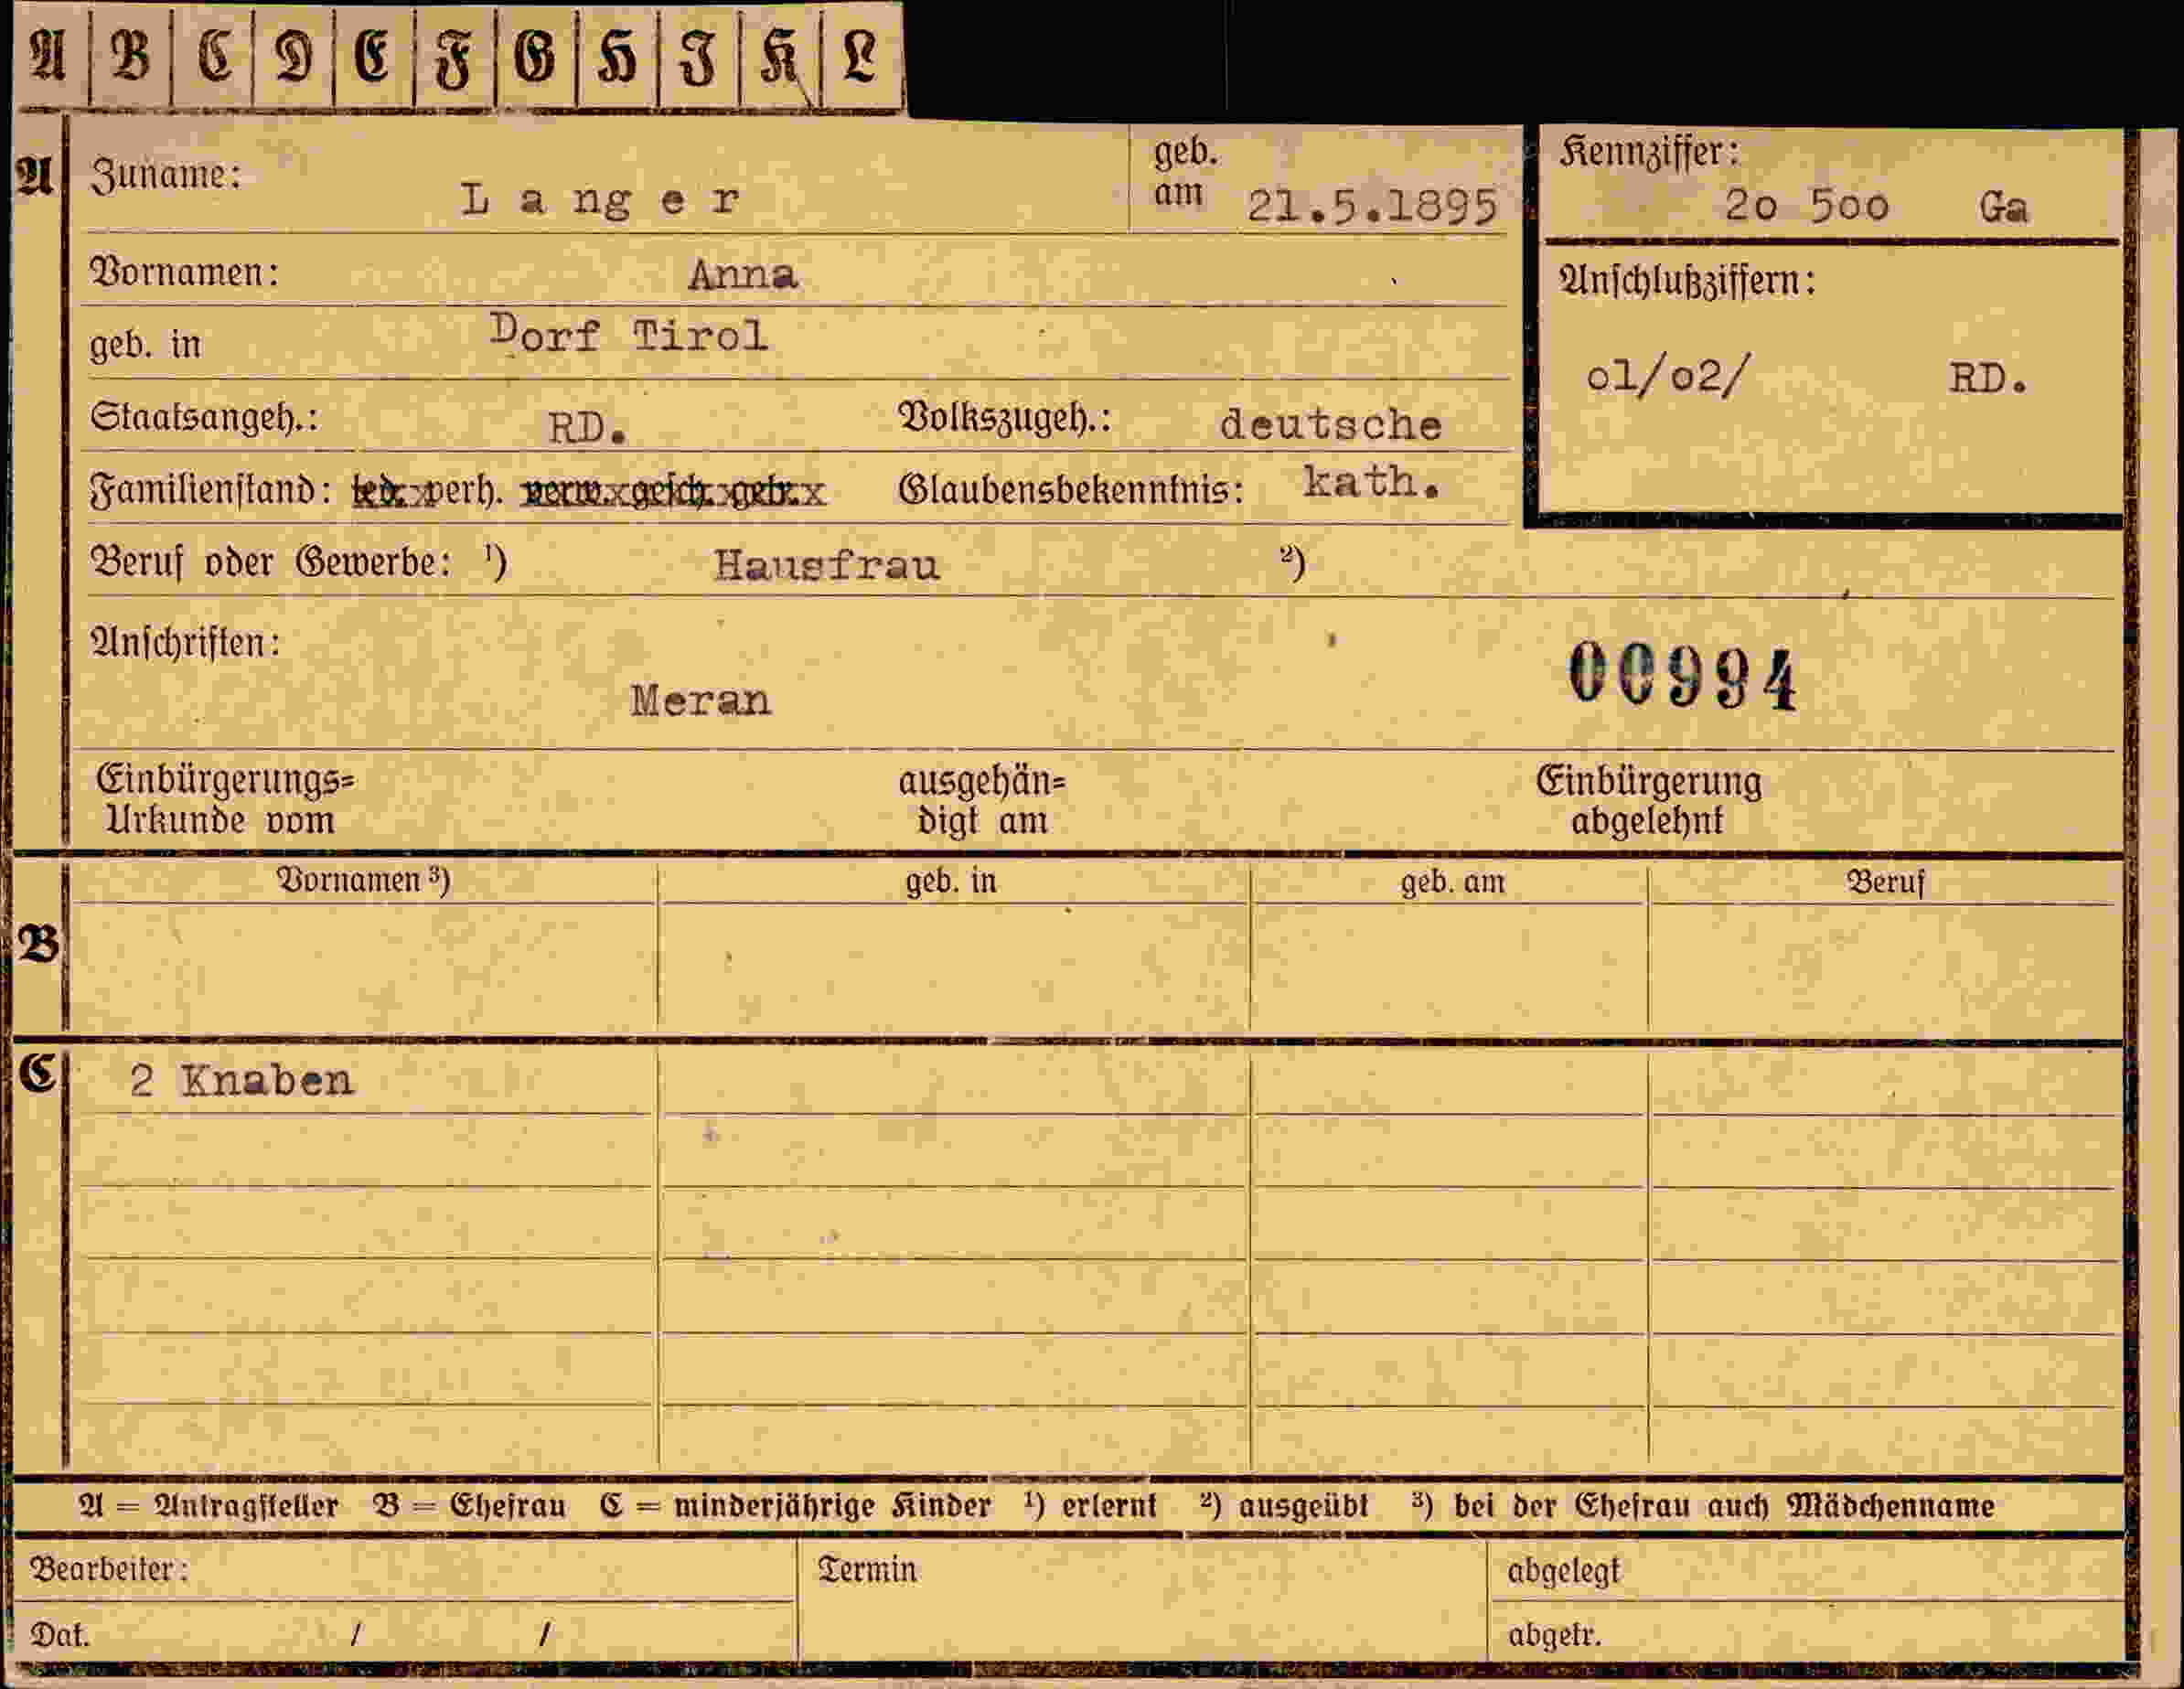 A B C D E F G H I K L
A Zuname: Langer geb. am 21.5.1895
Kennziffer: 2o 5oo Ga
Vornamen: Anna
Anschlußziffern:
geb. in Dorf Tirol
o1/o2/ RD.
Staatsangeh.: RD. Volkszugeh.: deutsche
Familienstand: led. verh. verw. gesch. getr. Glaubensbekenntnis: kath.
Beruf oder Gewerbe: ¹) Hausfrau ²)
Anschriften:
00994
Meran
Einbürgerungs= ausgehän= Einbürgerung
Urkunde vom digt am abgelehnt
Vornamen ³) geb. in geb. am Beruf
B
C 2 Knaben
A = Antragsteller B = Ehefrau C = minderjährige Kinder ¹) erlernt ²) ausgeübt ³) bei der Ehefrau auch Mädchenname
Bearbeiter: Termin abgelegt
Dat. / / abgetr.